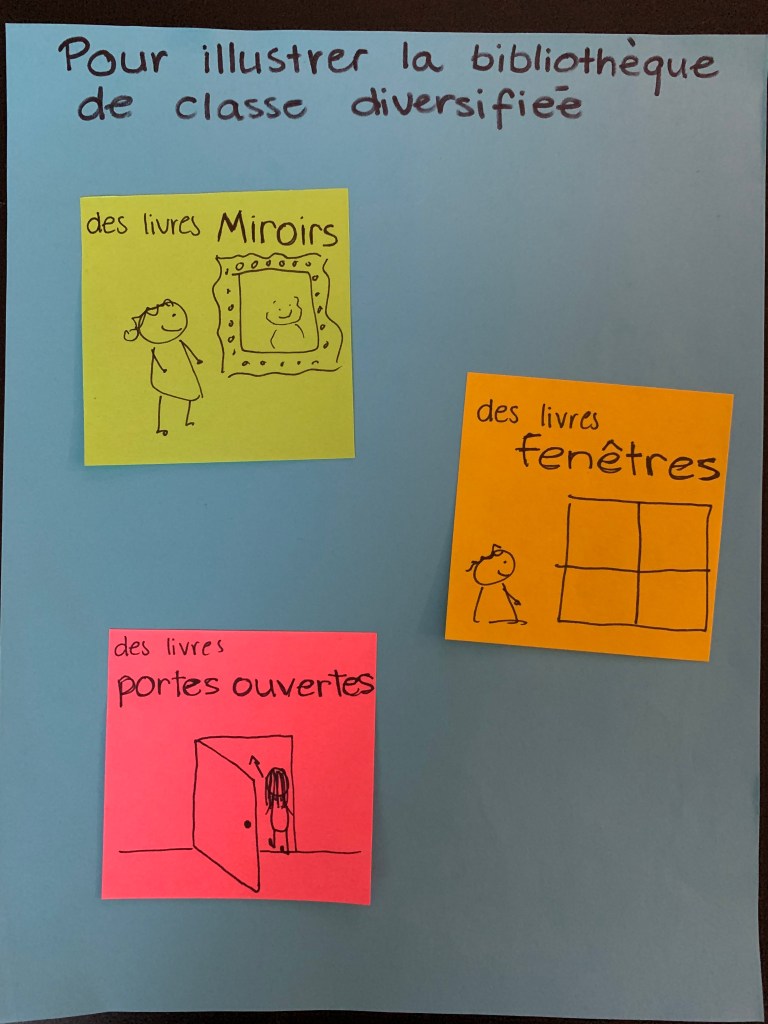 Pour illustrer la bibliothèque
de classe diversifiéé
des livres Miroirs
des livres
fenêtres
des livres
portes ouvertes